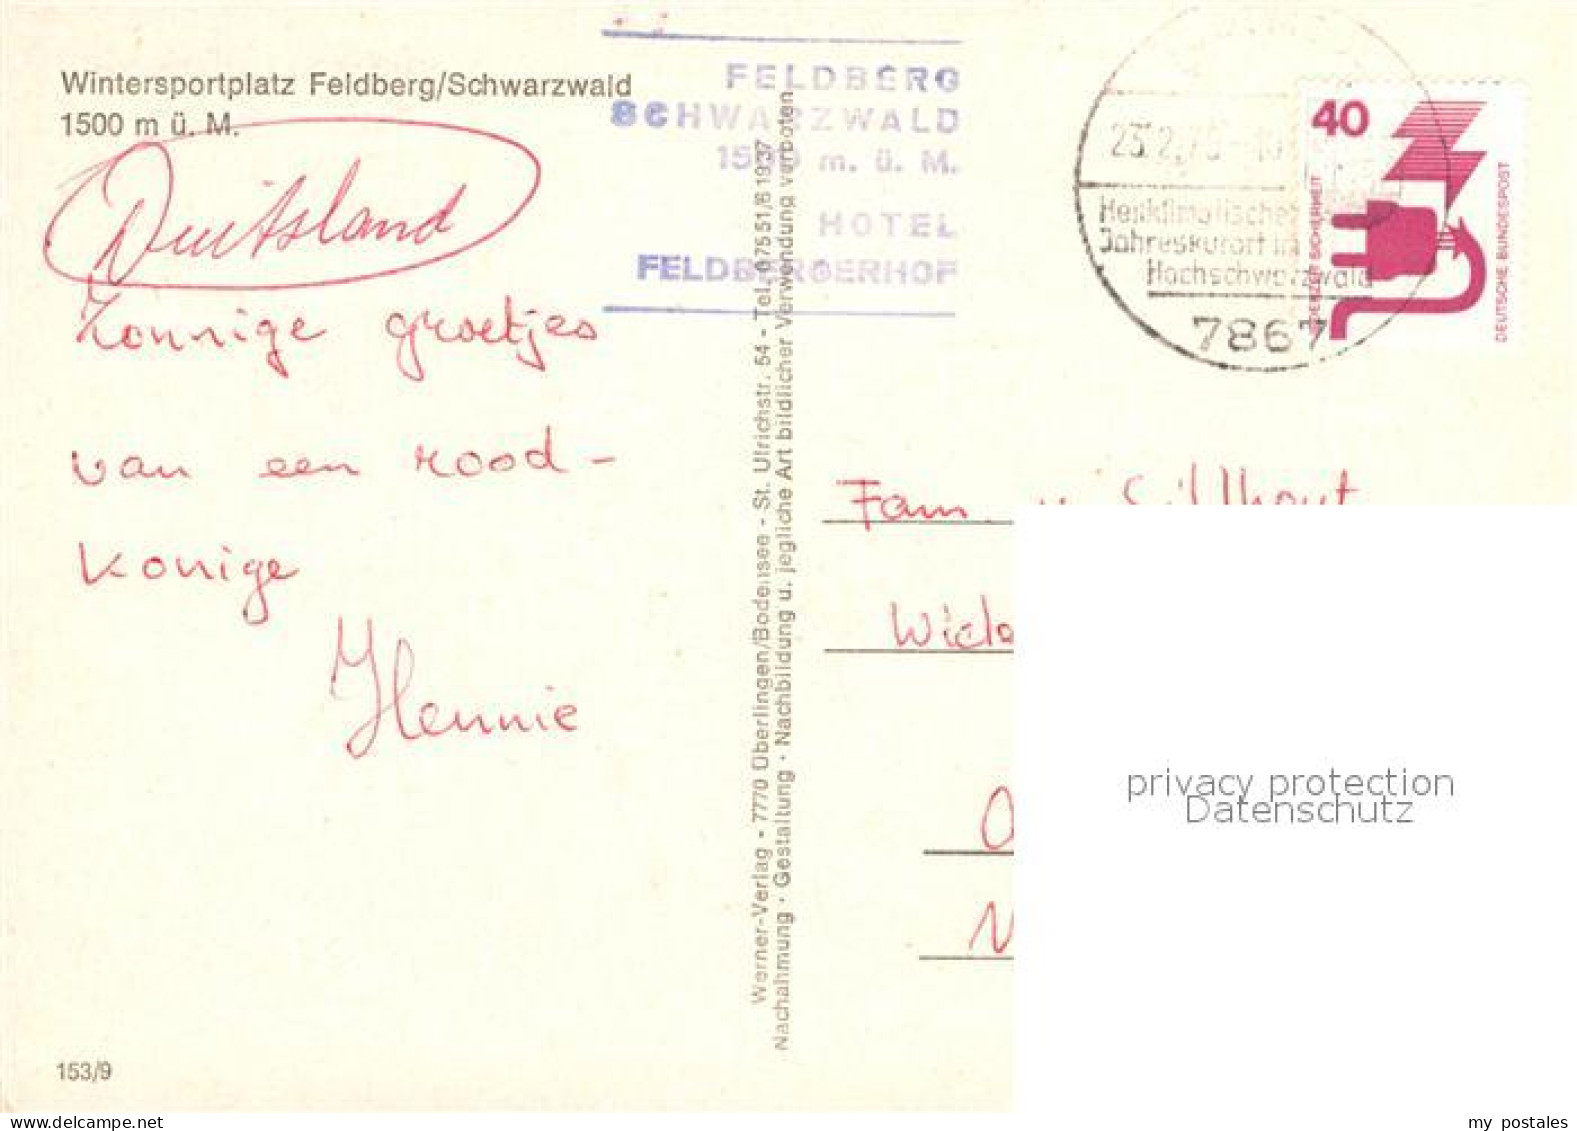 Wintersportplatz Feldberg/Schwarzwald
1500 m ü. M.
Duitsland
Zonnige groetjes
van een rood-
konige
Hennie
153/9
FELDBERG
SCHWARZWALD
1500 m. ü. M.
HOTEL
FELDBERGERHOF
Werner-Verlag - 7770 Überlingen/Bodensee - St. Ulrichstr. 54 - Tel. 07551/61937
Nachahmung · Gestaltung · Nachbildung u. jegliche Art bildlicher Verwendung verboten
Heilklimatischer
Jahreskurort im
Hochschwarzwald
7867
40
JEDERZEIT SICHERHEIT
DEUTSCHE BUNDESPOST
Fam.
privacy protection
Datenschutz
my postales